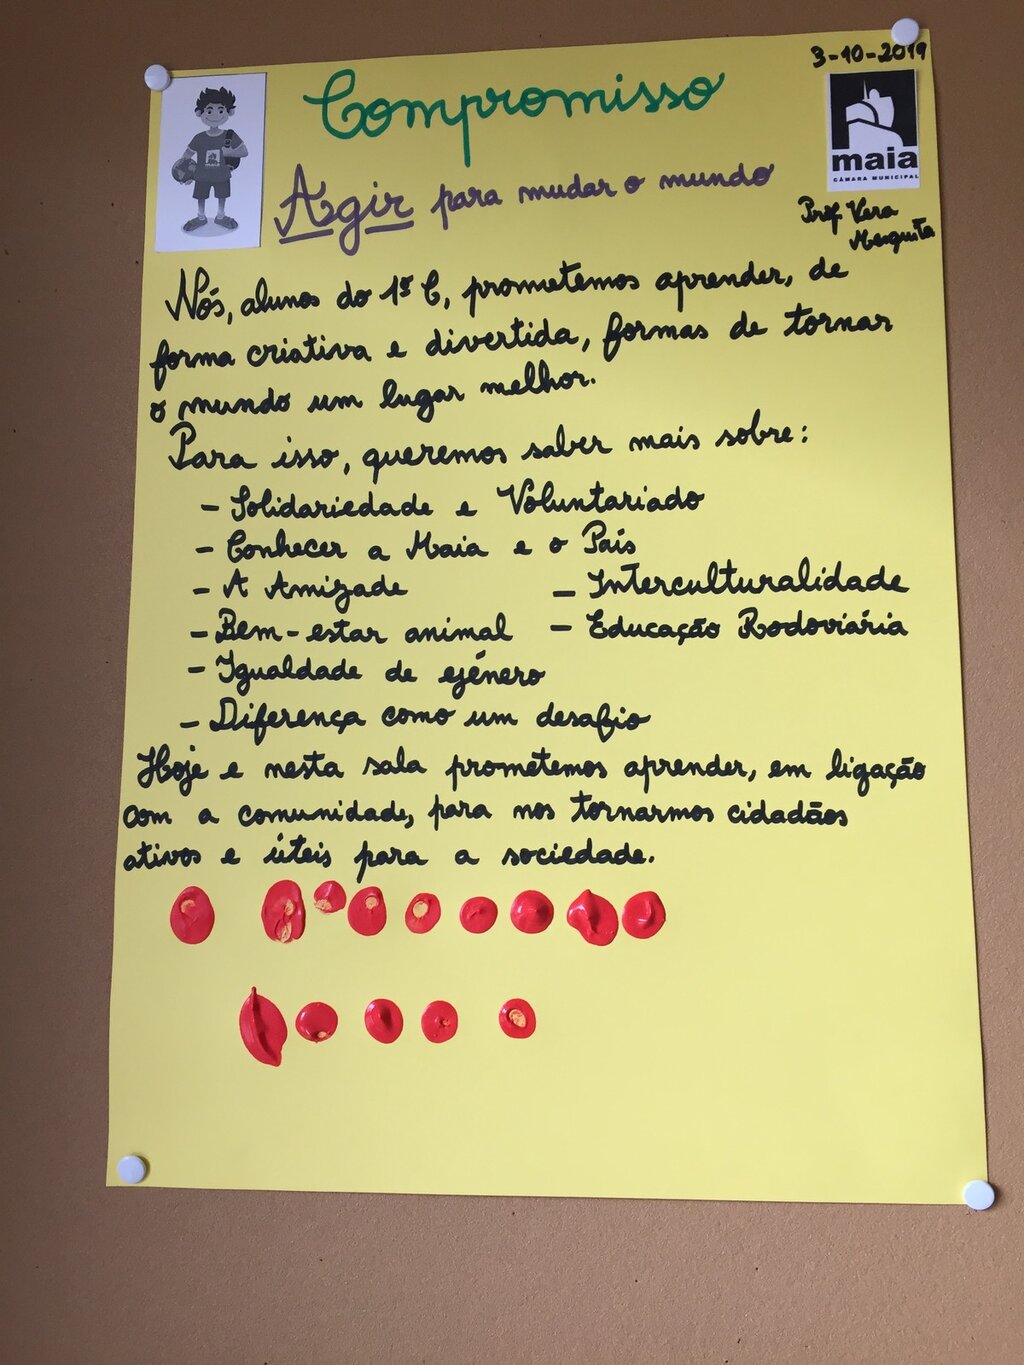 3-10-2019
Compromisso
maia
CÂMARA MUNICIPAL
Agir para mudar o mundo
Prof. Vera
Mesquita
Nós, alunos do 1º C, prometemos aprender, de
forma criativa e divertida, formas de tornar
o mundo um lugar melhor.
Para isso, queremos saber mais sobre:
- Solidariedade e Voluntariado
- Conhecer a Maia e o País
- A Amizade - Interculturalidade
- Bem-estar animal - Educação Rodoviária
- Igualdade de género
- Diferença como um desafio
Hoje e nesta sala prometemos aprender, em ligação
com a comunidade, para nos tornarmos cidadãos
ativos e úteis para a sociedade.